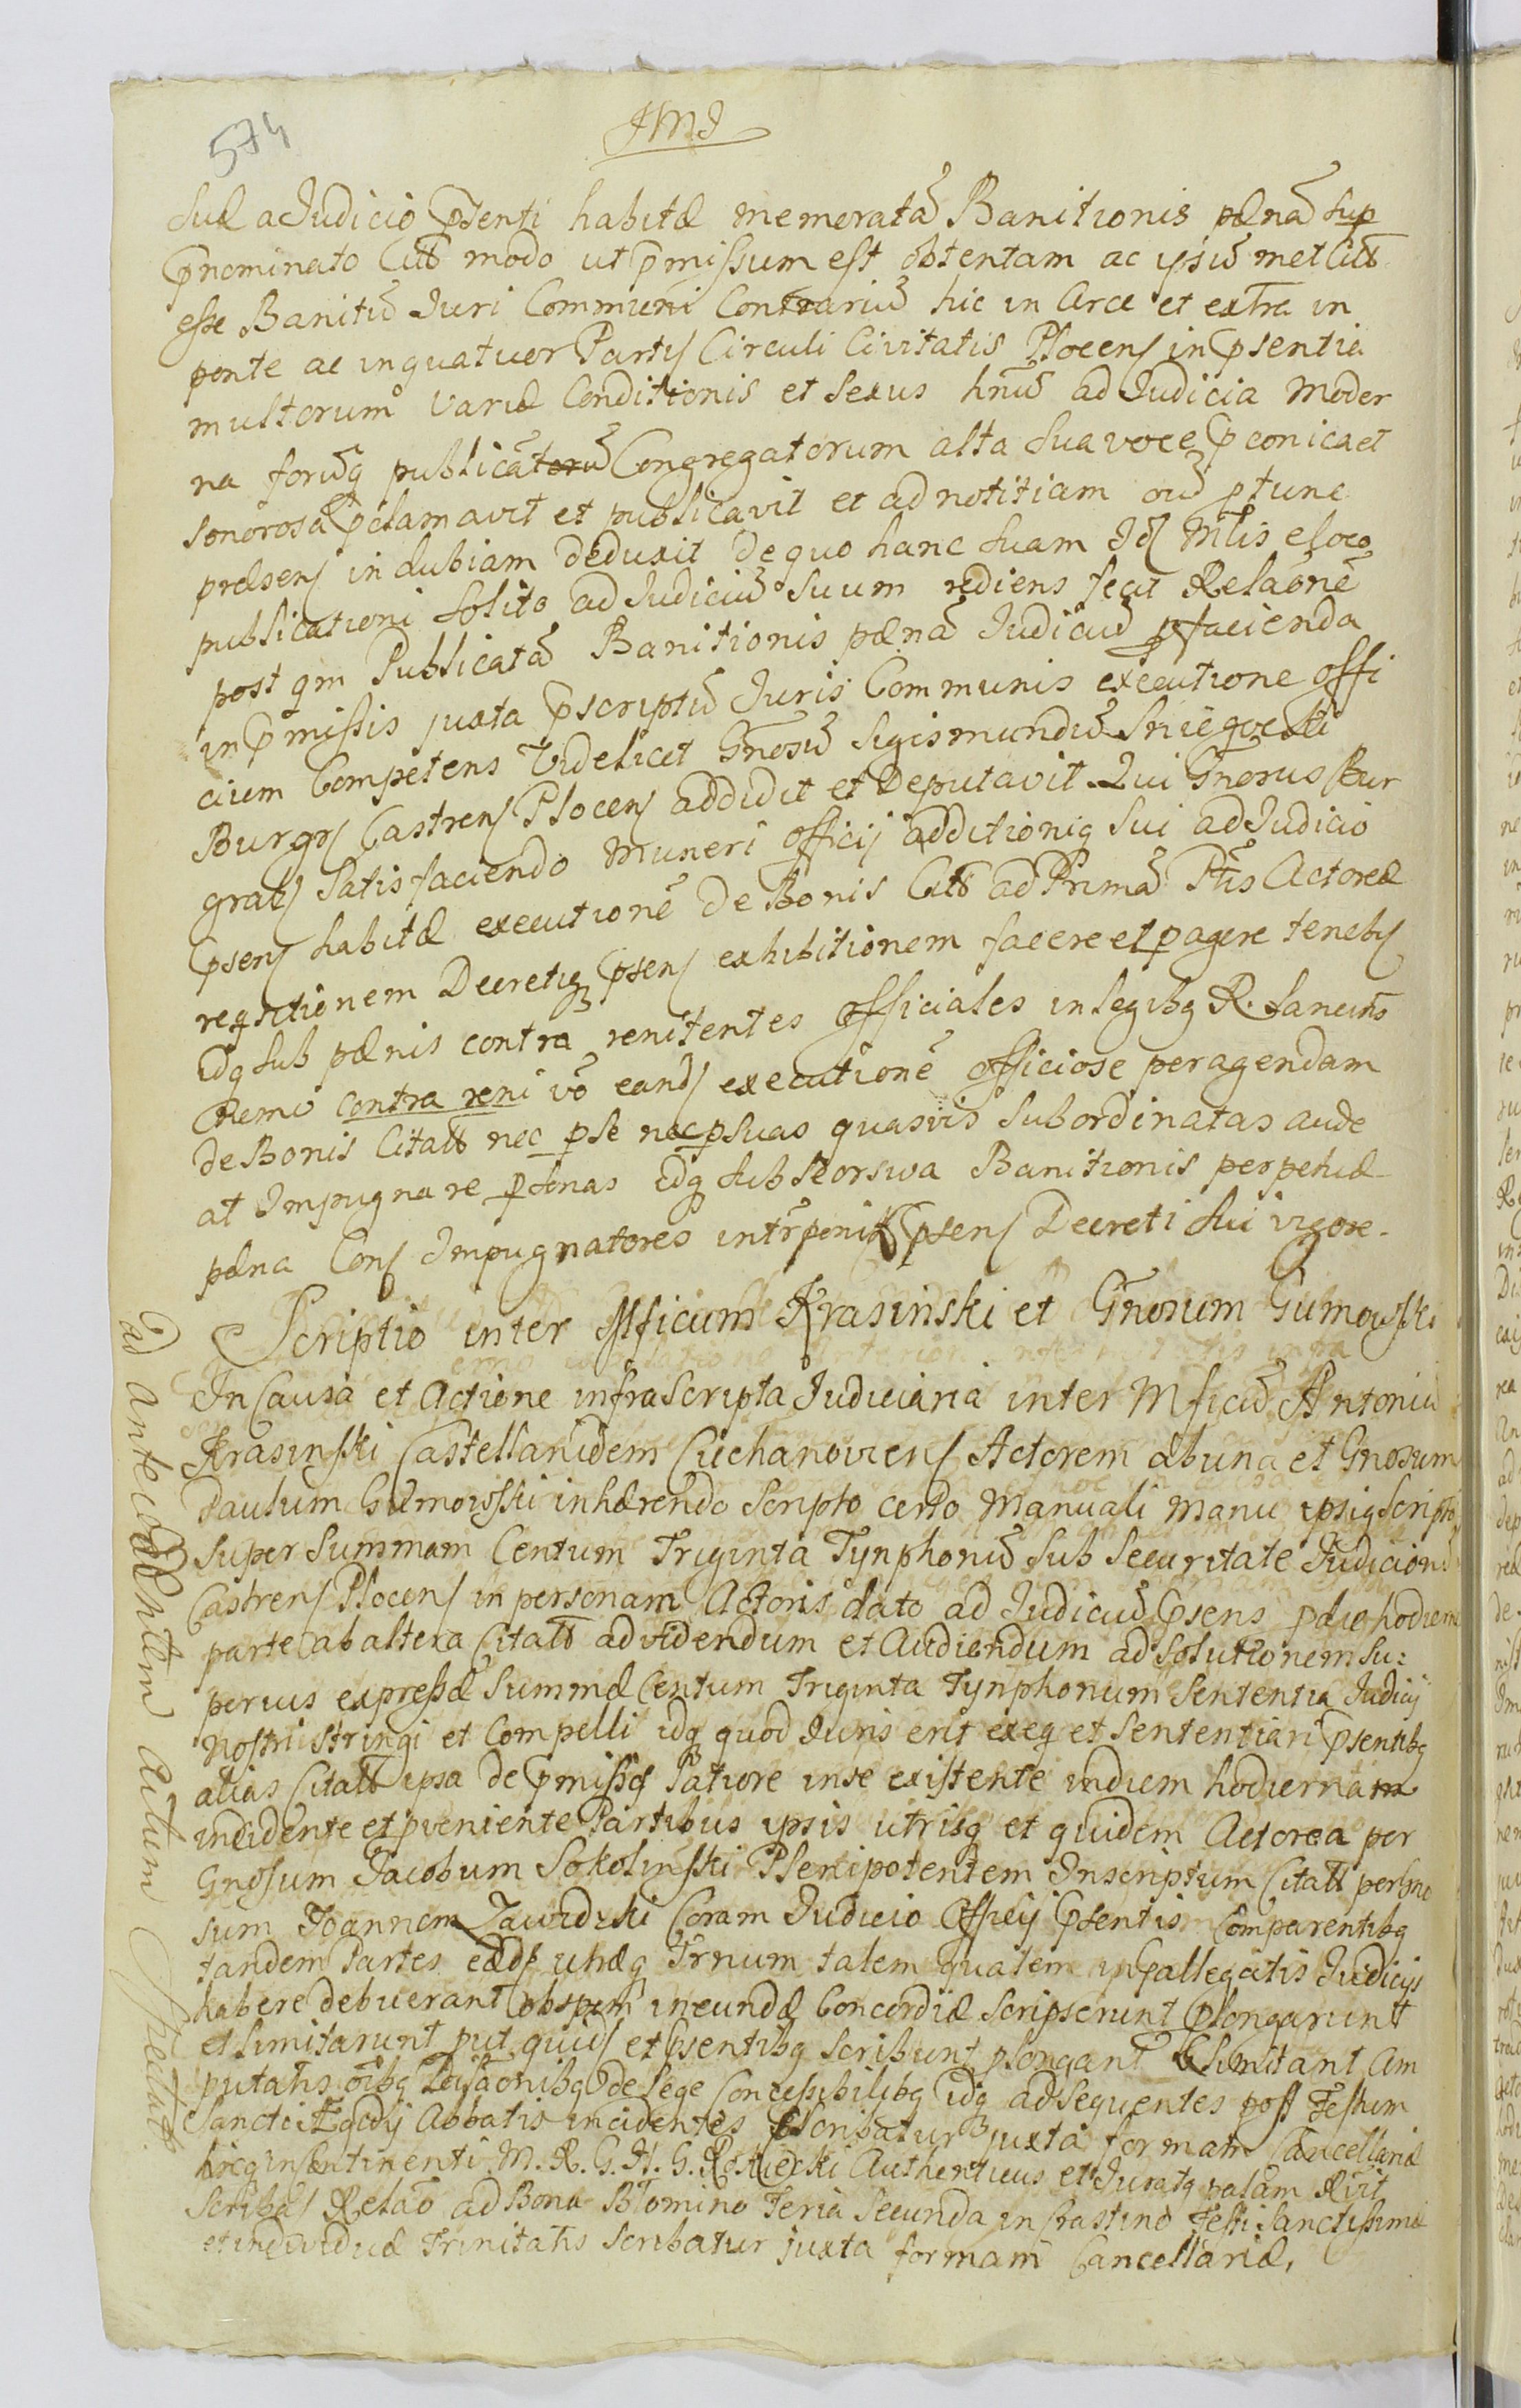 574
JMJ
suæ a Judicio Psenti habitæ memoratã Banitionis pænã sup
Pnominato Citto modo ut Pmissum est obtentam ac ipsũ met Citt
esse Banitũ Juri Communi Contrariũ hic in Arce et extra in
ponte ac in quatuor Partꝭ Circuli Civitatis Plocenꝭ in Psentia
multorum Variæ Conditionis et Sexus hnũ ad Judicia Moder
na forũq publicatorũ Congregatorum alta sua voce Pconica et
sonorosa Pclamavit et publicavit et ad notitiam oiũ ptunc
præsenꝭ indubiam deduxit de quo hanc suam Idꝭ Mlis e loco
publicationi solito ad Judiciũ suum rediens fecit Relãonẽ
post qm Publicatã Banitionis pænã Judiciũ p facienda
in Pmissis juxta Pscriptũ Juris Communis executione offi
cium Competens Videlicet Gnosũ Sigismundũ Sniegocki
Burgrꝭ Castrenꝭ Plocenꝭ addidit et Deputavit. Qui Gnosus Bur
grabꝭ satisfaciendo Muneri officij additioniq sui ad Judicio
Psenꝭ habitæ executionẽ de Bonis Citt ad Primã Ptis Actoreæ
reqsitionem Decretiq Psenꝭ exhibitionem facere et pagere tenebꝭ
Idq sub pænis contra renitentes officiales in legibq R. sancitis
Nemo contra reni võ eandꝭ executionẽ officiose peragendam
de Bonis Citatt nec p se nec p suas quasvis subordinatas aude
at Impugnare psonas Idq sub seorsiva Banitionis perpetuæ
pæna Conꝭ Impugnatores intrponi Psenꝭ Decreti sui vigore.
Scriptio inter Mficum Krasinski et Gnosum Gumowski
In Causa et Actione infrascripta Judiciaria inter Mficũ Antoniũ
Krasinski Castellanidem Ciechanoviensꝭ Actorem ab una et Gnosum
Paulum Gumowski inhærendo Scripto certo Manuali Manu ipsiq scripto
super summam Centum Triginta Tynphonũ sub securitate Judiciorũ
Castrenꝭ Plocenꝭ in personam Actoris dato ad Judiciũ Psens p die hodierna
parte ab altera Citatt ad videndum et Audiendum ad solutionem su:
perius expressæ summæ Centum Triginta Tynphonum Sententia Judicij
Nostri stringi et Compelli idq quod Juris erit exeq et sententiari Psentibq
alias Citatt ipsa de Pmissꝭ latiore in se existente in diem hodiernam
incidente et pveniente Partibus ipsis utrisq et quidem Actorea per
Gnosum Jacobum Sokolinski Plenipotentem Inscriptum Citatt per Gno
sum Joannem Zawidzki Coram Judicio Officij Psentis Comparentibq
tandem Partes eædꝭ utræq Trnum talem qualem in Pallegatis Judicijs
habere debuerant ob spem ineundæ Concordiæ scripserunt Plongarunt
et limitarunt put quidꝭ et Psentibq scribunt plongant et limitant Am
putatis oibq Dilãonibq de lege Concessibilibq idq ad sequentes post Festum
Sancti Ægidij Abbatis incidentes Psonsatur juxta formam Cancellariæ
hicq in Continenti M. R. G. H. G. Rosciecki Authenticus et Juratq palam Rvit
Scribaꝭ Relão ad Bona Blomino Feria Secunda in Crastino Festi Sanctissimæ
et individuæ Trinitatis scribatur juxta formam Cancellariæ.
Ad Antecod Rhttm Actum Spectat.